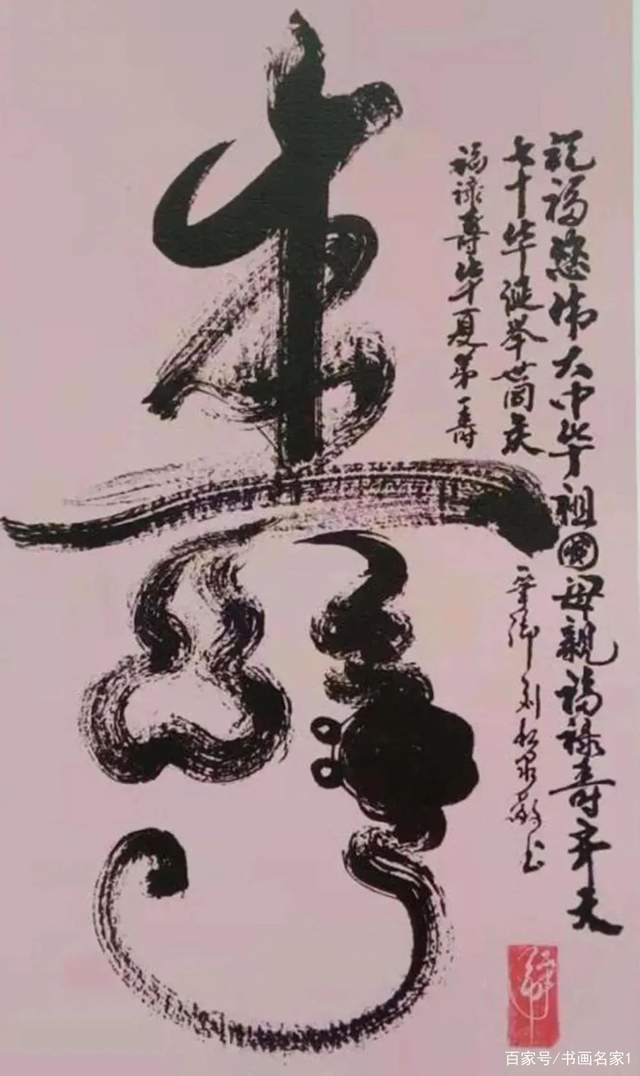 祝福您伟大中华祖國母親福禄寿齐天
七十华诞举世同庆
福禄寿华夏第一寿
刘 敬
壽
百家号/书画名家1